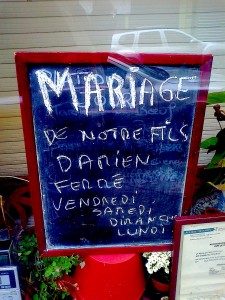 MARIAGE
DE NOTRE FILS
DAMIEN
FERMÉ
VENDREDI
SAMEDI
DIMANCHE
LUNDI